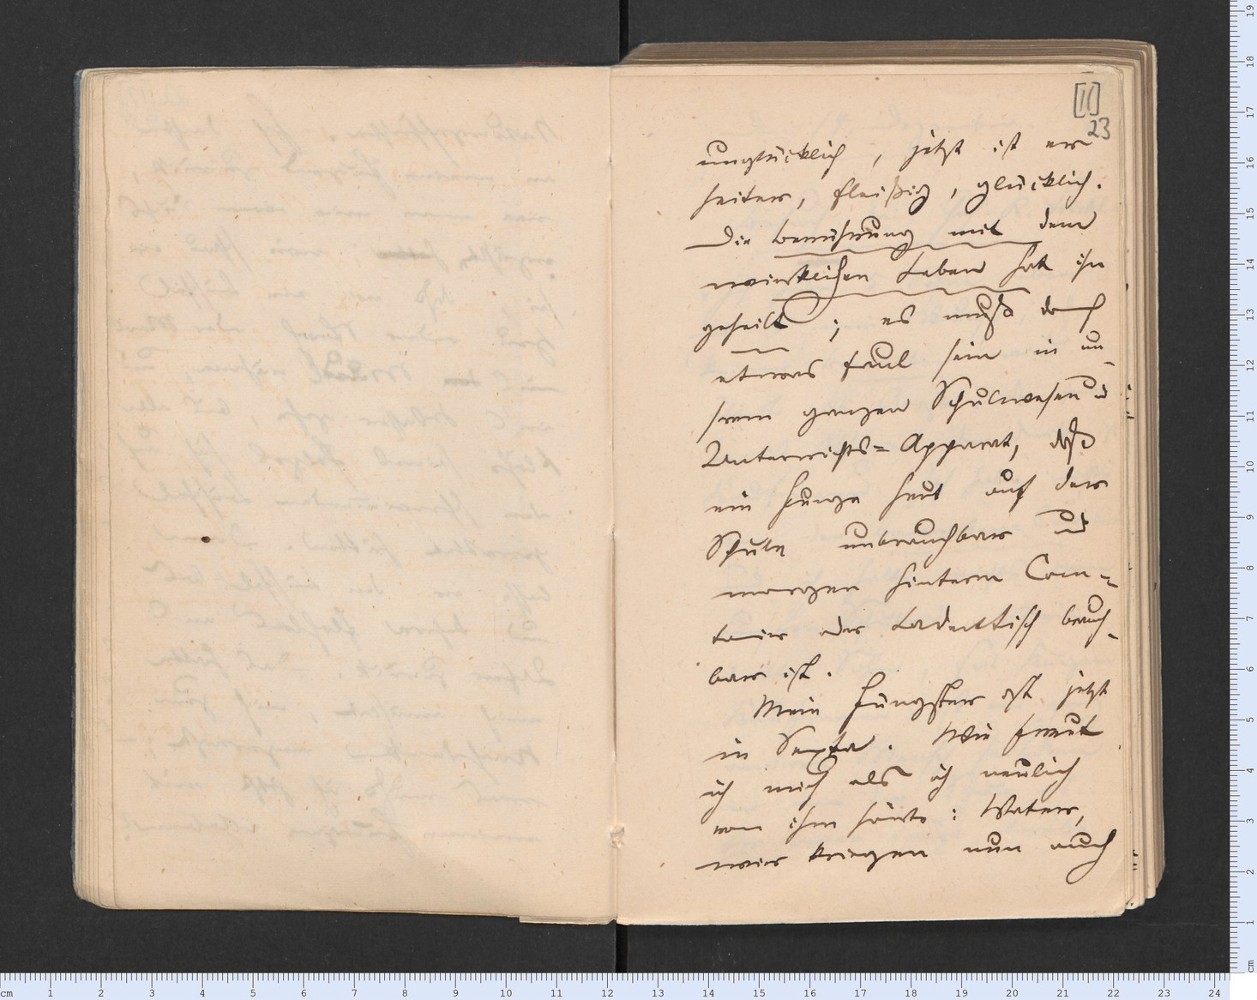 [11]
23
unglücklich, jetzt ist er
heiter, fleißig, glücklich.
Die Berührung mit dem
wirklichen Leben hat ihn
geheilt; es muß doch
etwas faul sein in un-
srem ganzen Schulwesen u
Unterrichts=Apparat, daß
ein Junge heut auf der
Schule unbrauchbar und
morgen hinterm Comp-
toir oder Ladentisch brauch-
bar ist.
Mein Jüngster ist jetzt
in Sexta. Wie freut
ich mich als ich neulich
von ihm hörte: Vater,
wir kriegen nun auch